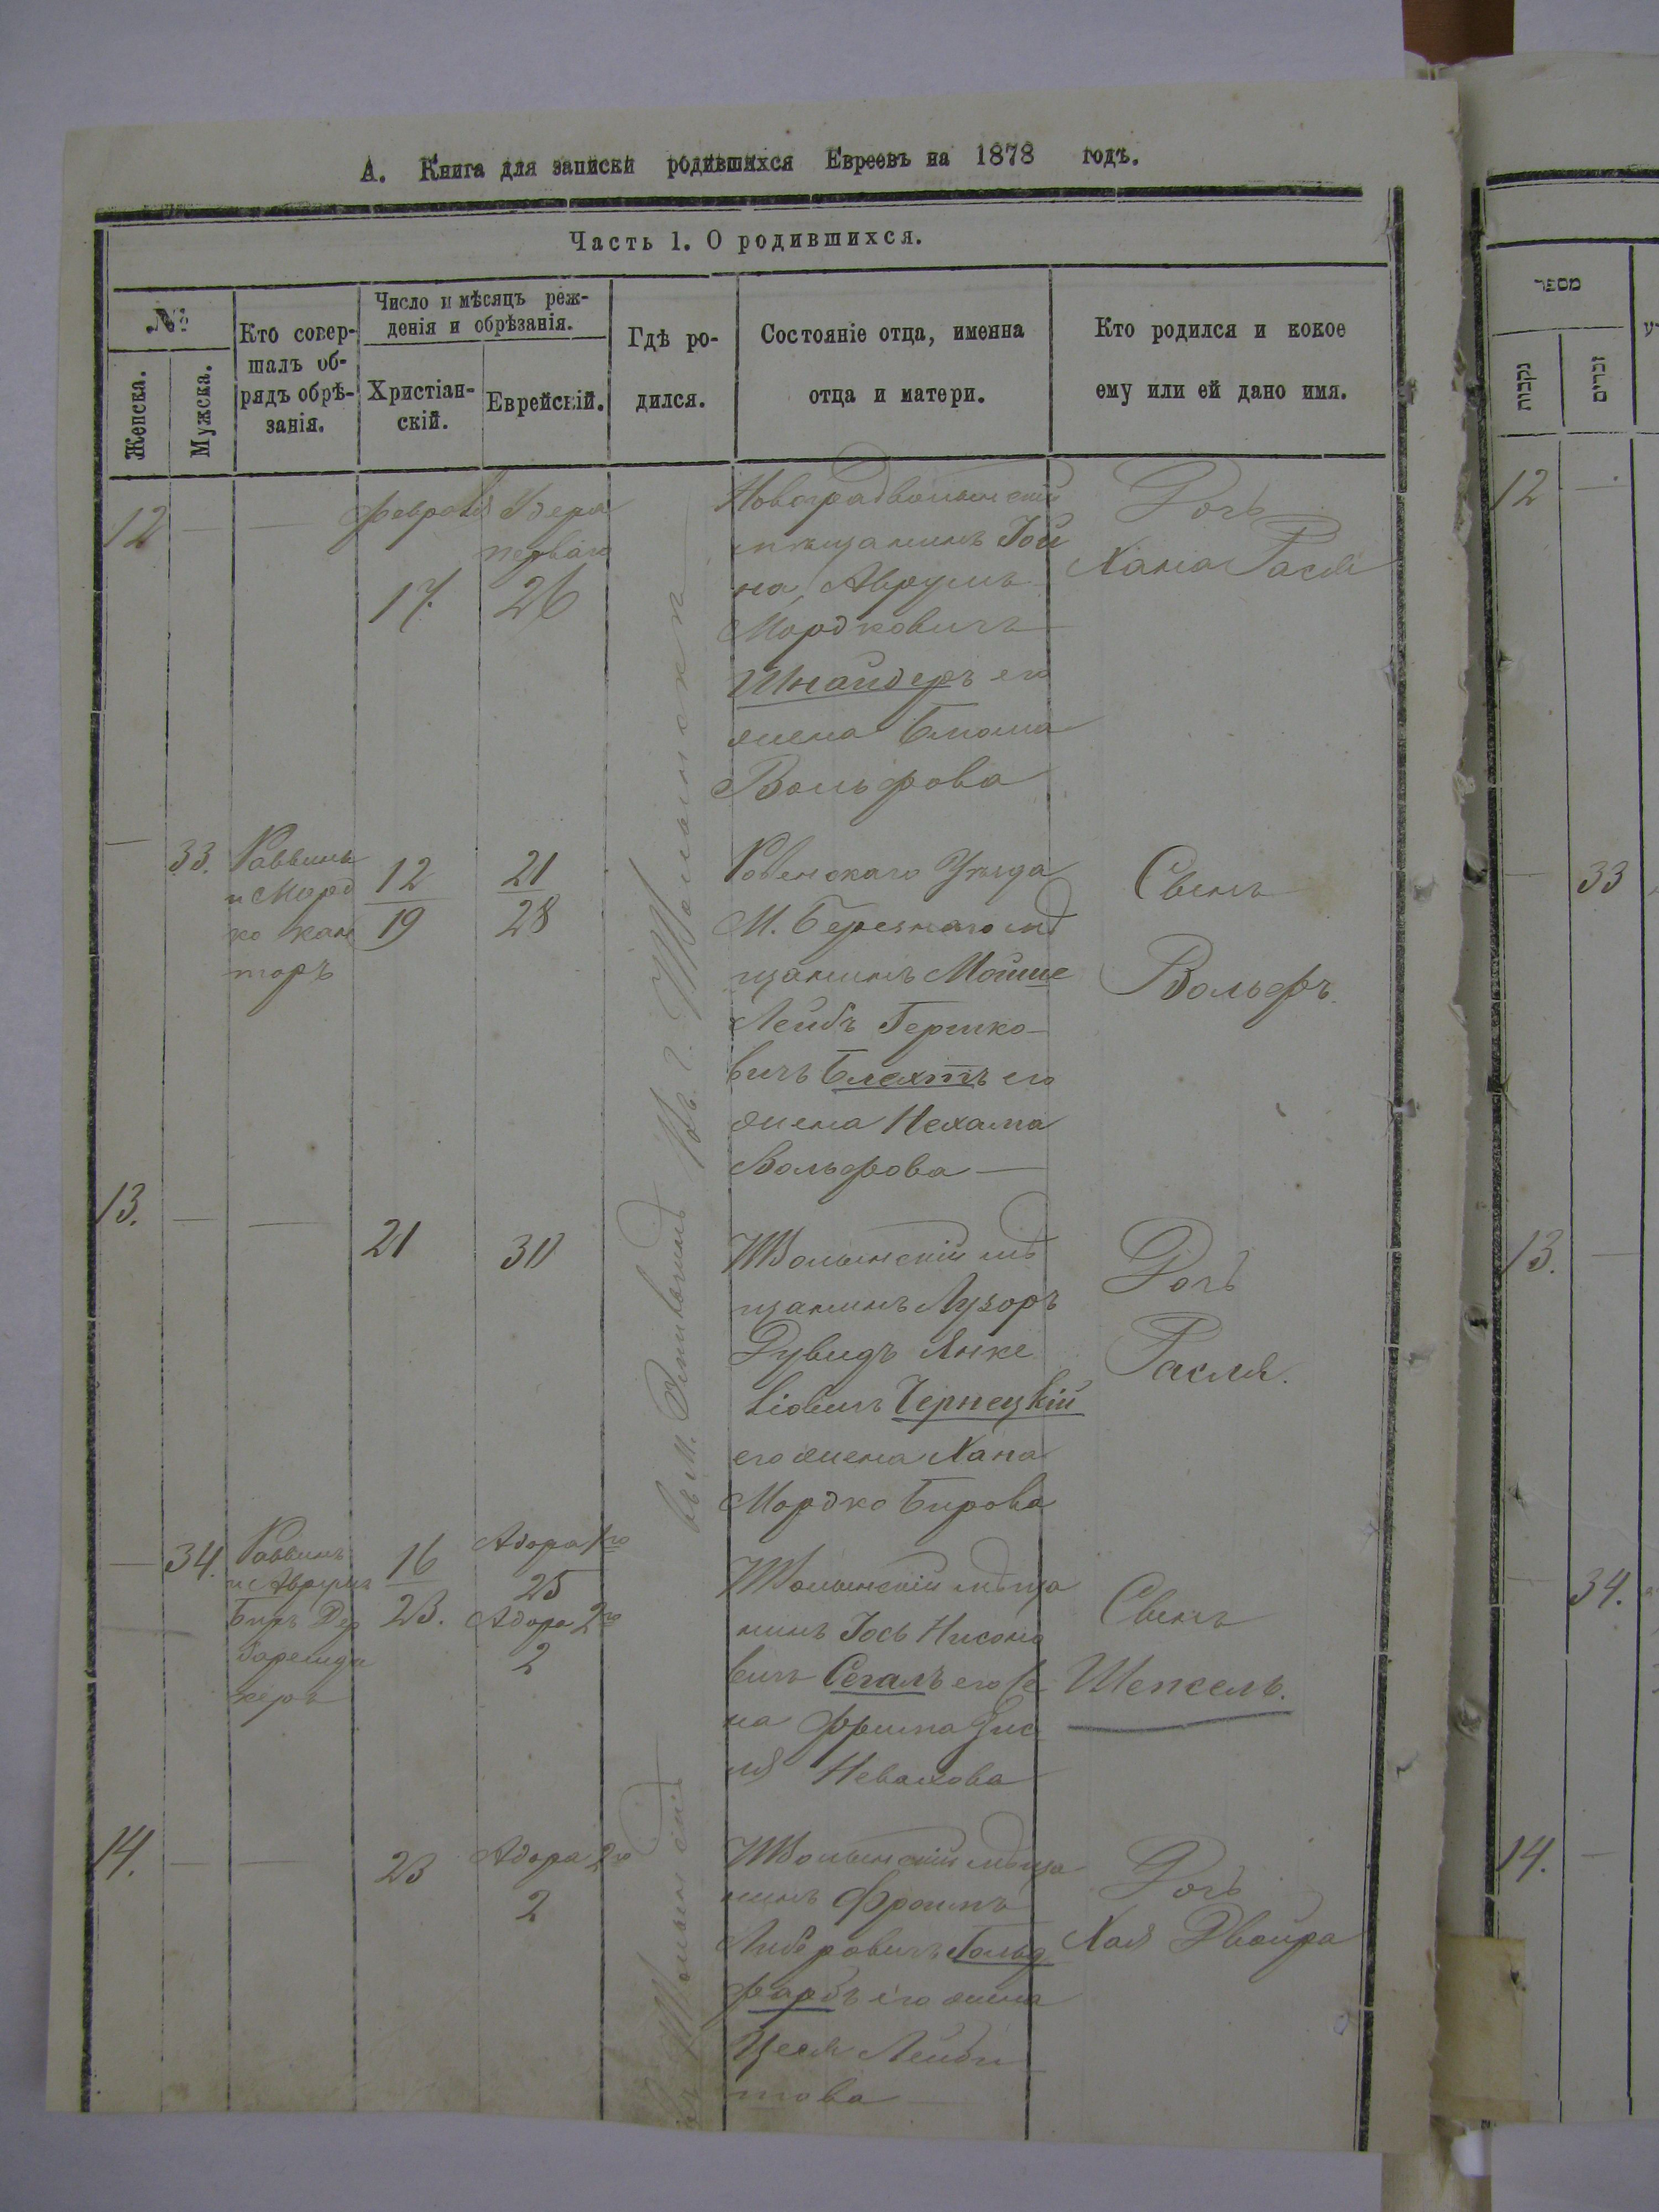 А. Книга для записки родившихся Евреевъ на 1878 годъ.
Часть 1. О родившихся.
№
Женска.
Мужска.
Кто совер-
шалъ об-
рядъ обрѣ-
занія.
Число и мѣсяцъ реж-
денія и обрѣзанія.
Христіан-
скій.
Еврейскій.
Гдѣ ро-
дился.
Состояніе отца, именна
отца и матери.
Кто родился и кокое
ему или ей дано имя.
12
— —
февраля
17.
Адера
перваго
26
Новоградволынскій
мѣщанинъ Іой
на Аврумъ
Мордковичъ
Шнайдеръ его
жена
Вольфова
Дочь
Хана Расля
—
33.
Раввинъ
и Мард
ко Кан
торъ
12
19
21
28
Ровенскаго Уѣзда
М. Березнаго мѣ
щанинъ Мойше
Лейбъ Гершко-
вичъ Блехтъ его
жена Нехама
Вольфова —
Свинъ
Вольфъ.
13.
— —
21
30
Волынскій мѣ
щанинъ Лузоръ
Дувидъ Янке
віовичъ Чернецкій
его жена Хана
Мордко Бирова
Дочь
Расля.
—
34.
Раввинъ
и Аврумъ
Биръ
16
23.
Адора 1го
25
Адора 2го
2
Волынскій мѣща
нинъ Іось Нисоно
вичъ Сегалъ его же
на Фрима
Невахова
Свинъ
Шепсель.
14.
— —
23
Адора 2го
2
Волынскій мѣща
нинъ Фроимъ
Либеровичъ Гольд
фарбъ его жена
Цесля Лейби
това
Дочь
Хая Двойра
въ М.
מספר
נקבות
זכרים
12 —
— 33
13. —
— 34.
14. —